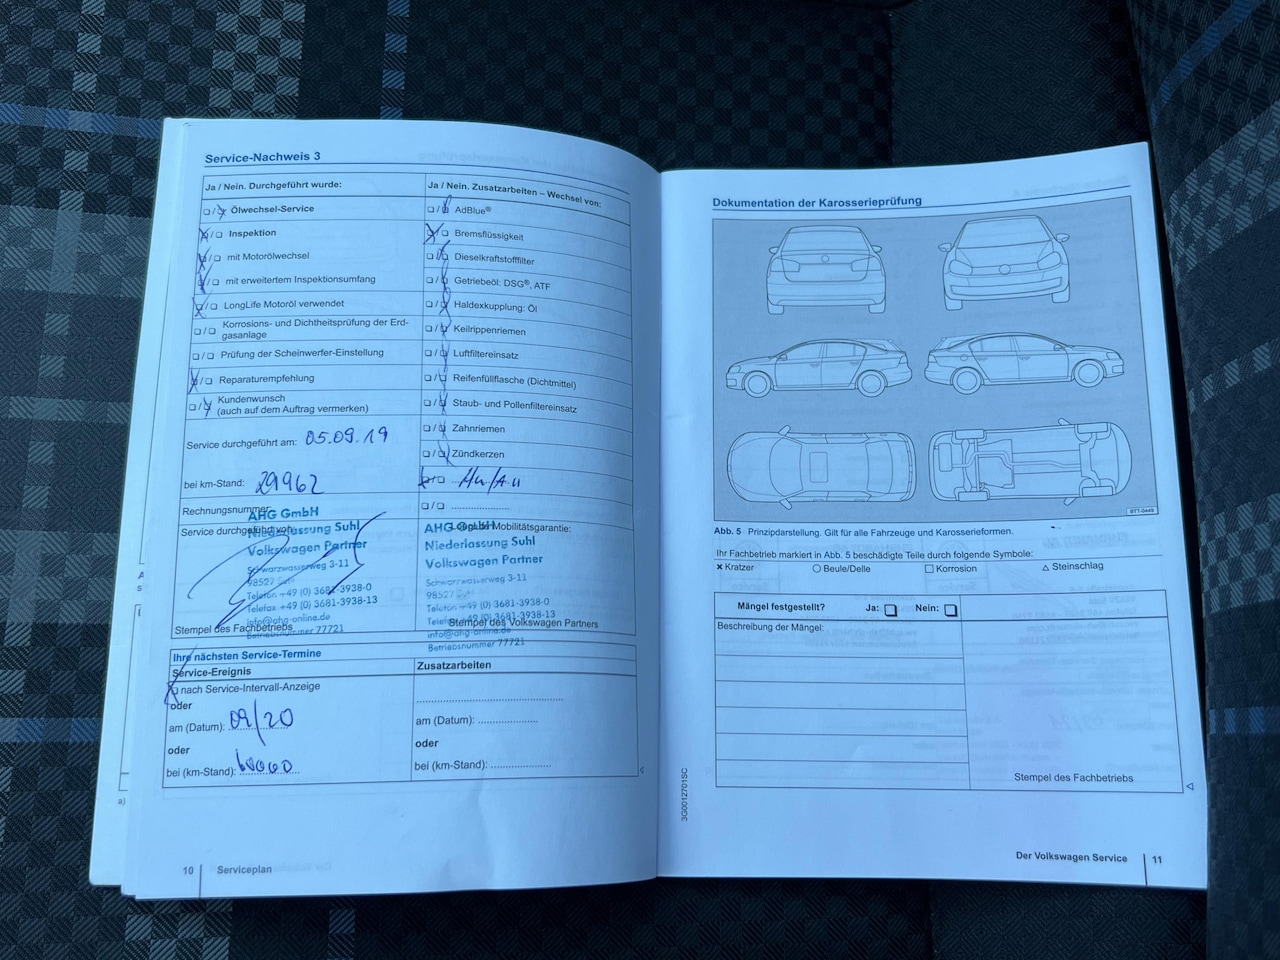 Service-Nachweis 3
Ja / Nein. Durchgeführt wurde:
❏ / ❏ Ölwechsel-Service
❏ / ❏ Inspektion
❏ / ❏ mit Motorölwechsel
❏ / ❏ mit erweitertem Inspektionsumfang
❏ / ❏ LongLife Motoröl verwendet
❏ / ❏ Korrosions- und Dichtheitsprüfung der Erd-
gasanlage
❏ / ❏ Prüfung der Scheinwerfer-Einstellung
❏ / ❏ Reparaturempfehlung
❏ / ❏ Kundenwunsch
(auch auf dem Auftrag vermerken)
Service durchgeführt am: 05.09.19
bei km-Stand: 29962
Rechnungsnummer
Service durchgeführt von:
AHG GmbH
Niederlassung Suhl
Volkswagen Partner
Schwarzwasserweg 3-11
98527 Suhl
Telefon +49 (0) 3681-3938-0
Telefax +49 (0) 3681-3938-13
info@ahg-online.de
Betriebsnummer 77721
Stempel des Fachbetriebs
Ja / Nein. Zusatzarbeiten – Wechsel von:
❏ / ❏ AdBlue®
❏ / ❏ Bremsflüssigkeit
❏ / ❏ Dieselkraftstofffilter
❏ / ❏ Getriebeöl: DSG®, ATF
❏ / ❏ Haldexkupplung: Öl
❏ / ❏ Keilrippenriemen
❏ / ❏ Luftfiltereinsatz
❏ / ❏ Reifenfüllflasche (Dichtmittel)
❏ / ❏ Staub- und Pollenfiltereinsatz
❏ / ❏ Zahnriemen
❏ / ❏ Zündkerzen
❏ / ❏ Hu/Au
❏ / ❏ ....................
LongLife Mobilitätsgarantie:
AHG GmbH
Niederlassung Suhl
Volkswagen Partner
Schwarzwasserweg 3-11
98527 Suhl
Telefon +49 (0) 3681-3938-0
Telefax +49 (0) 3681-3938-13
info@ahg-online.de
Betriebsnummer 77721
Stempel des Volkswagen Partners
Ihre nächsten Service-Termine
Service-Ereignis
❏ nach Service-Intervall-Anzeige
oder
am (Datum): 09/20
oder
bei (km-Stand): 60000
Zusatzarbeiten
am (Datum): ....................
oder
bei (km-Stand): ....................
10 Serviceplan
a)
Dokumentation der Karosserieprüfung
BTT-0449
Abb. 5 Prinzipdarstellung. Gilt für alle Fahrzeuge und Karosserieformen.
Ihr Fachbetrieb markiert in Abb. 5 beschädigte Teile durch folgende Symbole:
× Kratzer ○ Beule/Delle □ Korrosion △ Steinschlag
Mängel festgestellt? Ja: ❏ Nein: ❏
Beschreibung der Mängel:
Stempel des Fachbetriebs
3G0012701SC
Der Volkswagen Service 11